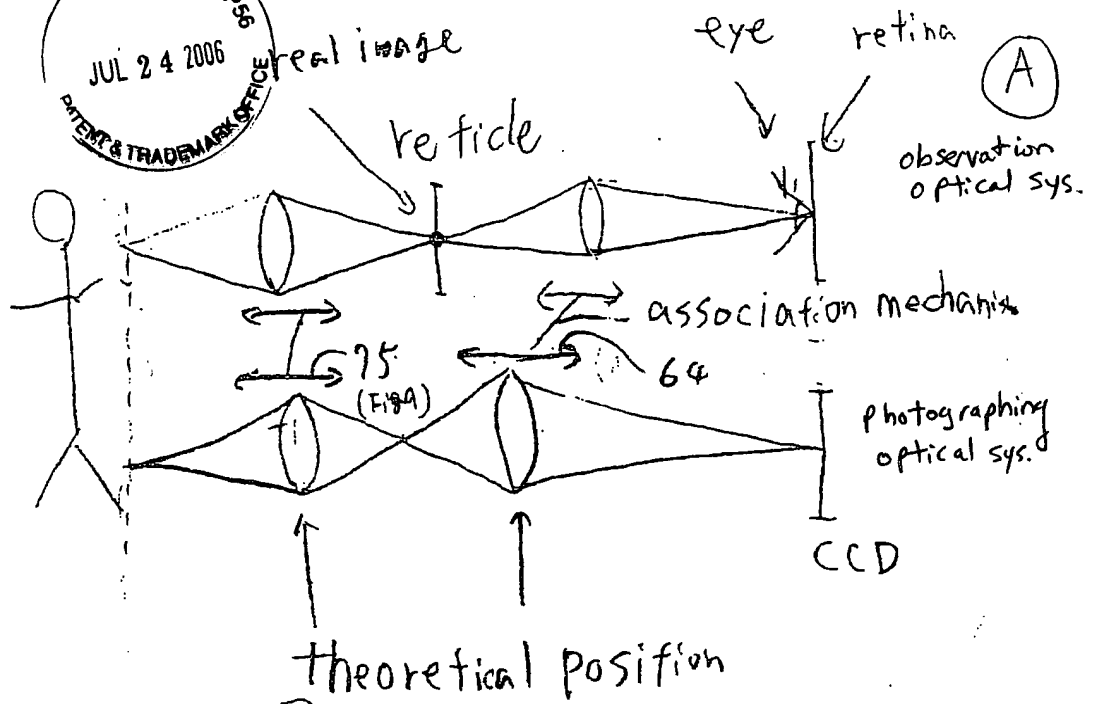 56
JUL 24 2006
PATENT & TRADEMARK OFFICE
real image
reticle
eye
retina
A
observation
optical sys.
association mechanism
75
(Fig 9)
64
photographing
optical sys.
CCD
theoretical position